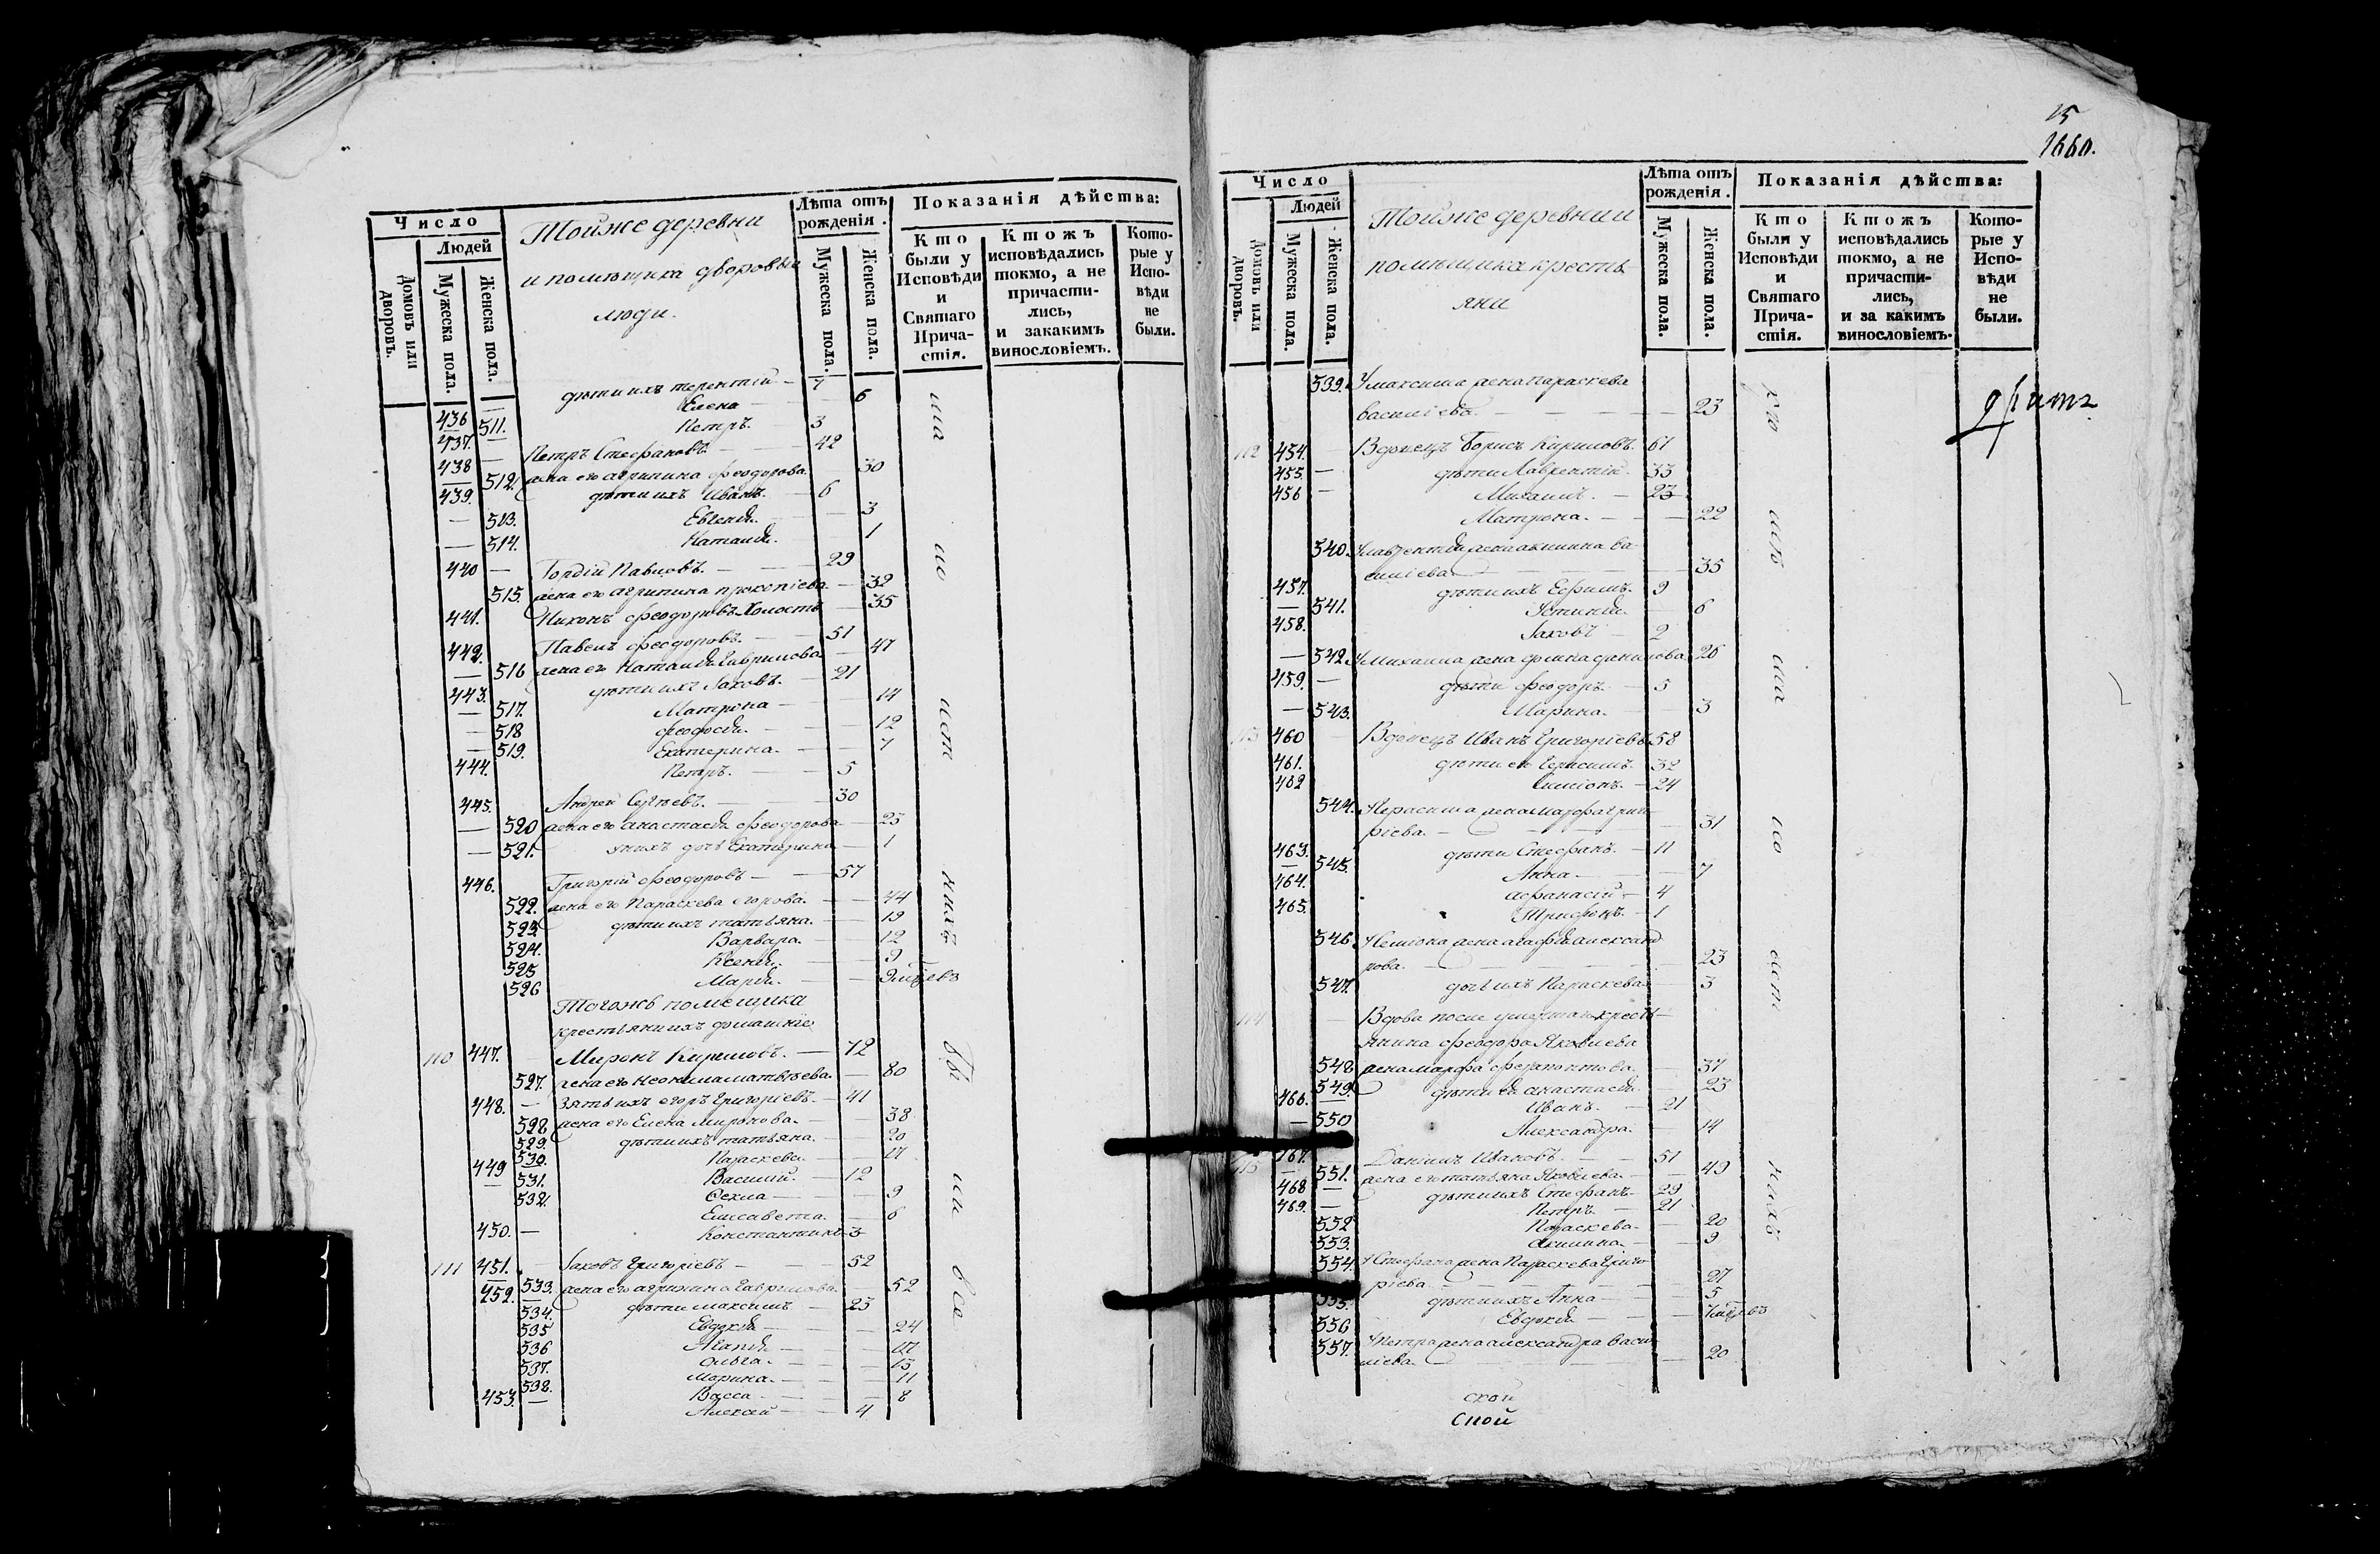 Число
Людей
Домовъ или дворовъ.
Мужеска пола.
Женска пола.
Тойже деревни
и помѣщика дворовыи
люди.
Лѣта отъ рожденія.
Мужеска пола.
Женска пола.
Показанія дѣйства:
Кто были у Исповѣди и Святаго Причастія.
Ктожъ исповѣдались токмо, а не причастились, и закакимъ винословіемъ.
Которые у Исповѣди не были.
436 дѣти ихъ терентій - 7
511. Елена 6
437. Петръ. 3
438 — Петръ Стефановъ 42
512. жена его агрипина феодорова. 30
439. дѣти ихъ Иванъ. - 6
— 513. Евгенія. 3
— 514. Наталія. 1
440 — Гордій Павловъ. 29
515. жена его агрипина прокопіева. 32
441. Никонъ феодоровъ Холостъ 35
442. Павелъ феодоровъ. 51
— 516 жена его Наталія Гаврилова 47
443. дѣти ихъ Іаковъ. - 21
— 517. Матрона 14
— 518 феодосія. 12
— 519. Екатерина. 7
444. Петръ. 5
445. Андрей Сергѣевъ. 30
— 520 жена его анастасія феодорова 25
— 521. у нихъ дочь Екатерина 1
446. Григорій феодоровъ 57
522. жена его Параскева егорова. 44
523. дѣти ихъ татьяна. 19
524. Варвара. 12
525 Ксенія. 9
526 Марія.
Тогожъ помещика
крестьяни ихъ домашніе
110 447. Миронъ Кириловъ. 72
527. жена его Неонила матвѣева. 80
448. — Зять ихъ егоръ Григоріевъ. - 41
528 жена его Елена миронова. 38
529. дѣти ихъ татьяна. 20
530. Параскева. 17
449 531. Василій. 12
532. Фекла 9
Елисавета. 6
450. — Константинъ 3
111 451. Іаковъ Григоріевъ 52
533. жена его агрипина Гаврилова. 52
452. дѣти максимъ 23
534. Евдокія 24
535
536 17
537. Ольга. 15
538. Марина. 11
Васса. 8
453. — Алексей 4
15
1660.
Число
Людей
Домовъ или дворовъ.
Мужеска пола.
Женска пола.
Тойже деревни и
помѣщика кресть
яни
Лѣта отъ рожденія.
Мужеска пола.
Женска пола.
Показанія дѣйства:
Кто были у Исповѣди и Святаго Причастія.
Ктожъ исповѣдались токмо, а не причастились, и за какимъ винословіемъ.
Которые у Исповѣди не были.
539. У максима жена параскева
василіева. 23
112 454. Вдовецъ Борисъ Кириловъ. 61
455. — дѣти Лаврентій. 33
456 — Михаилъ. 23
Матрона. 22
540. У лаврентія жена акилина ва-
силіева 35
457. дѣти ихъ Ефимъ. 9
541. Устинія. 6
458. Іаковъ 2
— 542. У михаила жена домна данилова 26
459. — дѣти феодоръ. 5
— 543. Марина. 3
113 460 Вдовецъ Иванъ Григоріевъ 58
461. дѣти его Герасимъ. 32
462 Симіонъ. 24
544. У Герасима жена марфа григо
ріева. 31
463. дѣти Стефанъ. 11
545. Анна 7
464. афанасій 4
465. Трифонъ. 1
546. У Семіона жена агафія александ
рова. 23
547. дочь ихъ Параскева 3
114 Вдова после умершаго кресть-
янина феодора Яковлева
548 жена марфа ферапонтова. 37
549. дѣти ея анастасія. 23
466. Иванъ. 21
— 550 Александра. 14
115 467. Даніилъ Ивановъ. 51
551. жена его татьяна Яковлева. 49
468 — дѣти ихъ Стефанъ 29
469. — Петръ. 21
552 Параскева 20
553. Акилина 9
554. У Стефана жена Параскева Григо
ріева. 27
555. дѣти ихъ Анна 5
556 Евдокія
557. У Петра жена александра васи
ліева. 20
ской
Спой